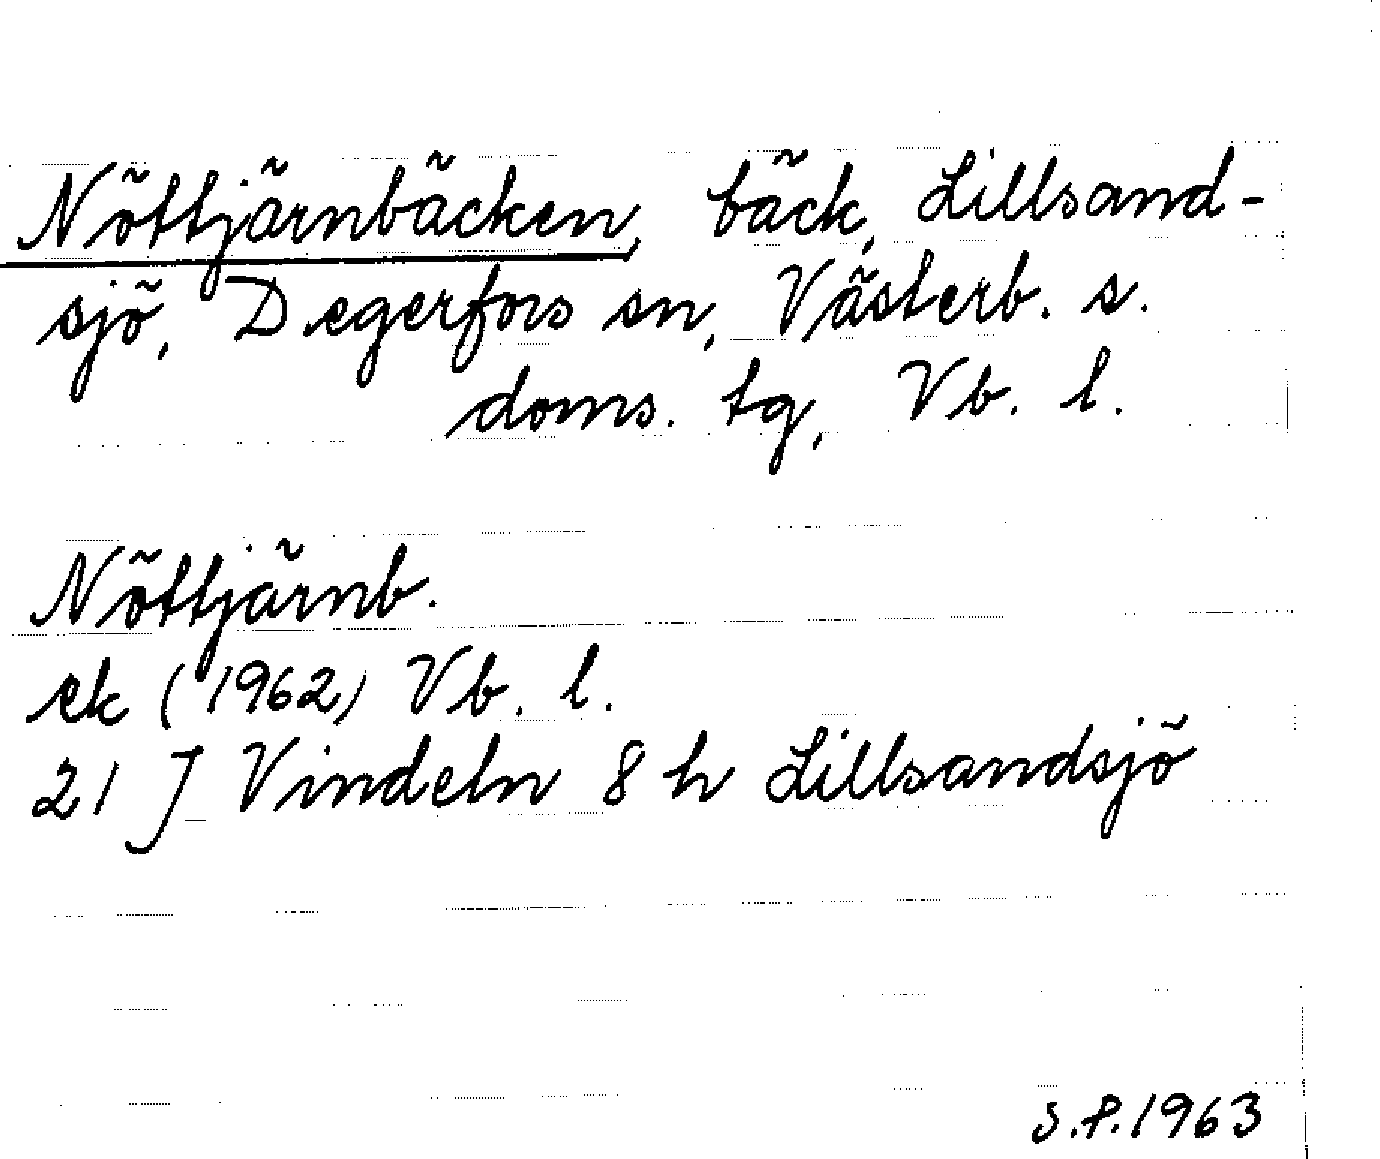 Nöttjärnbäcken, bäck, Lillsand-
sjö, Degerfors sn, Västerb. s.
doms. tg, Vb. l.
Nöttjärnb.
ek (1962) Vb. l.
21 J Vindeln 8 h Lillsandsjö
S.P.1963